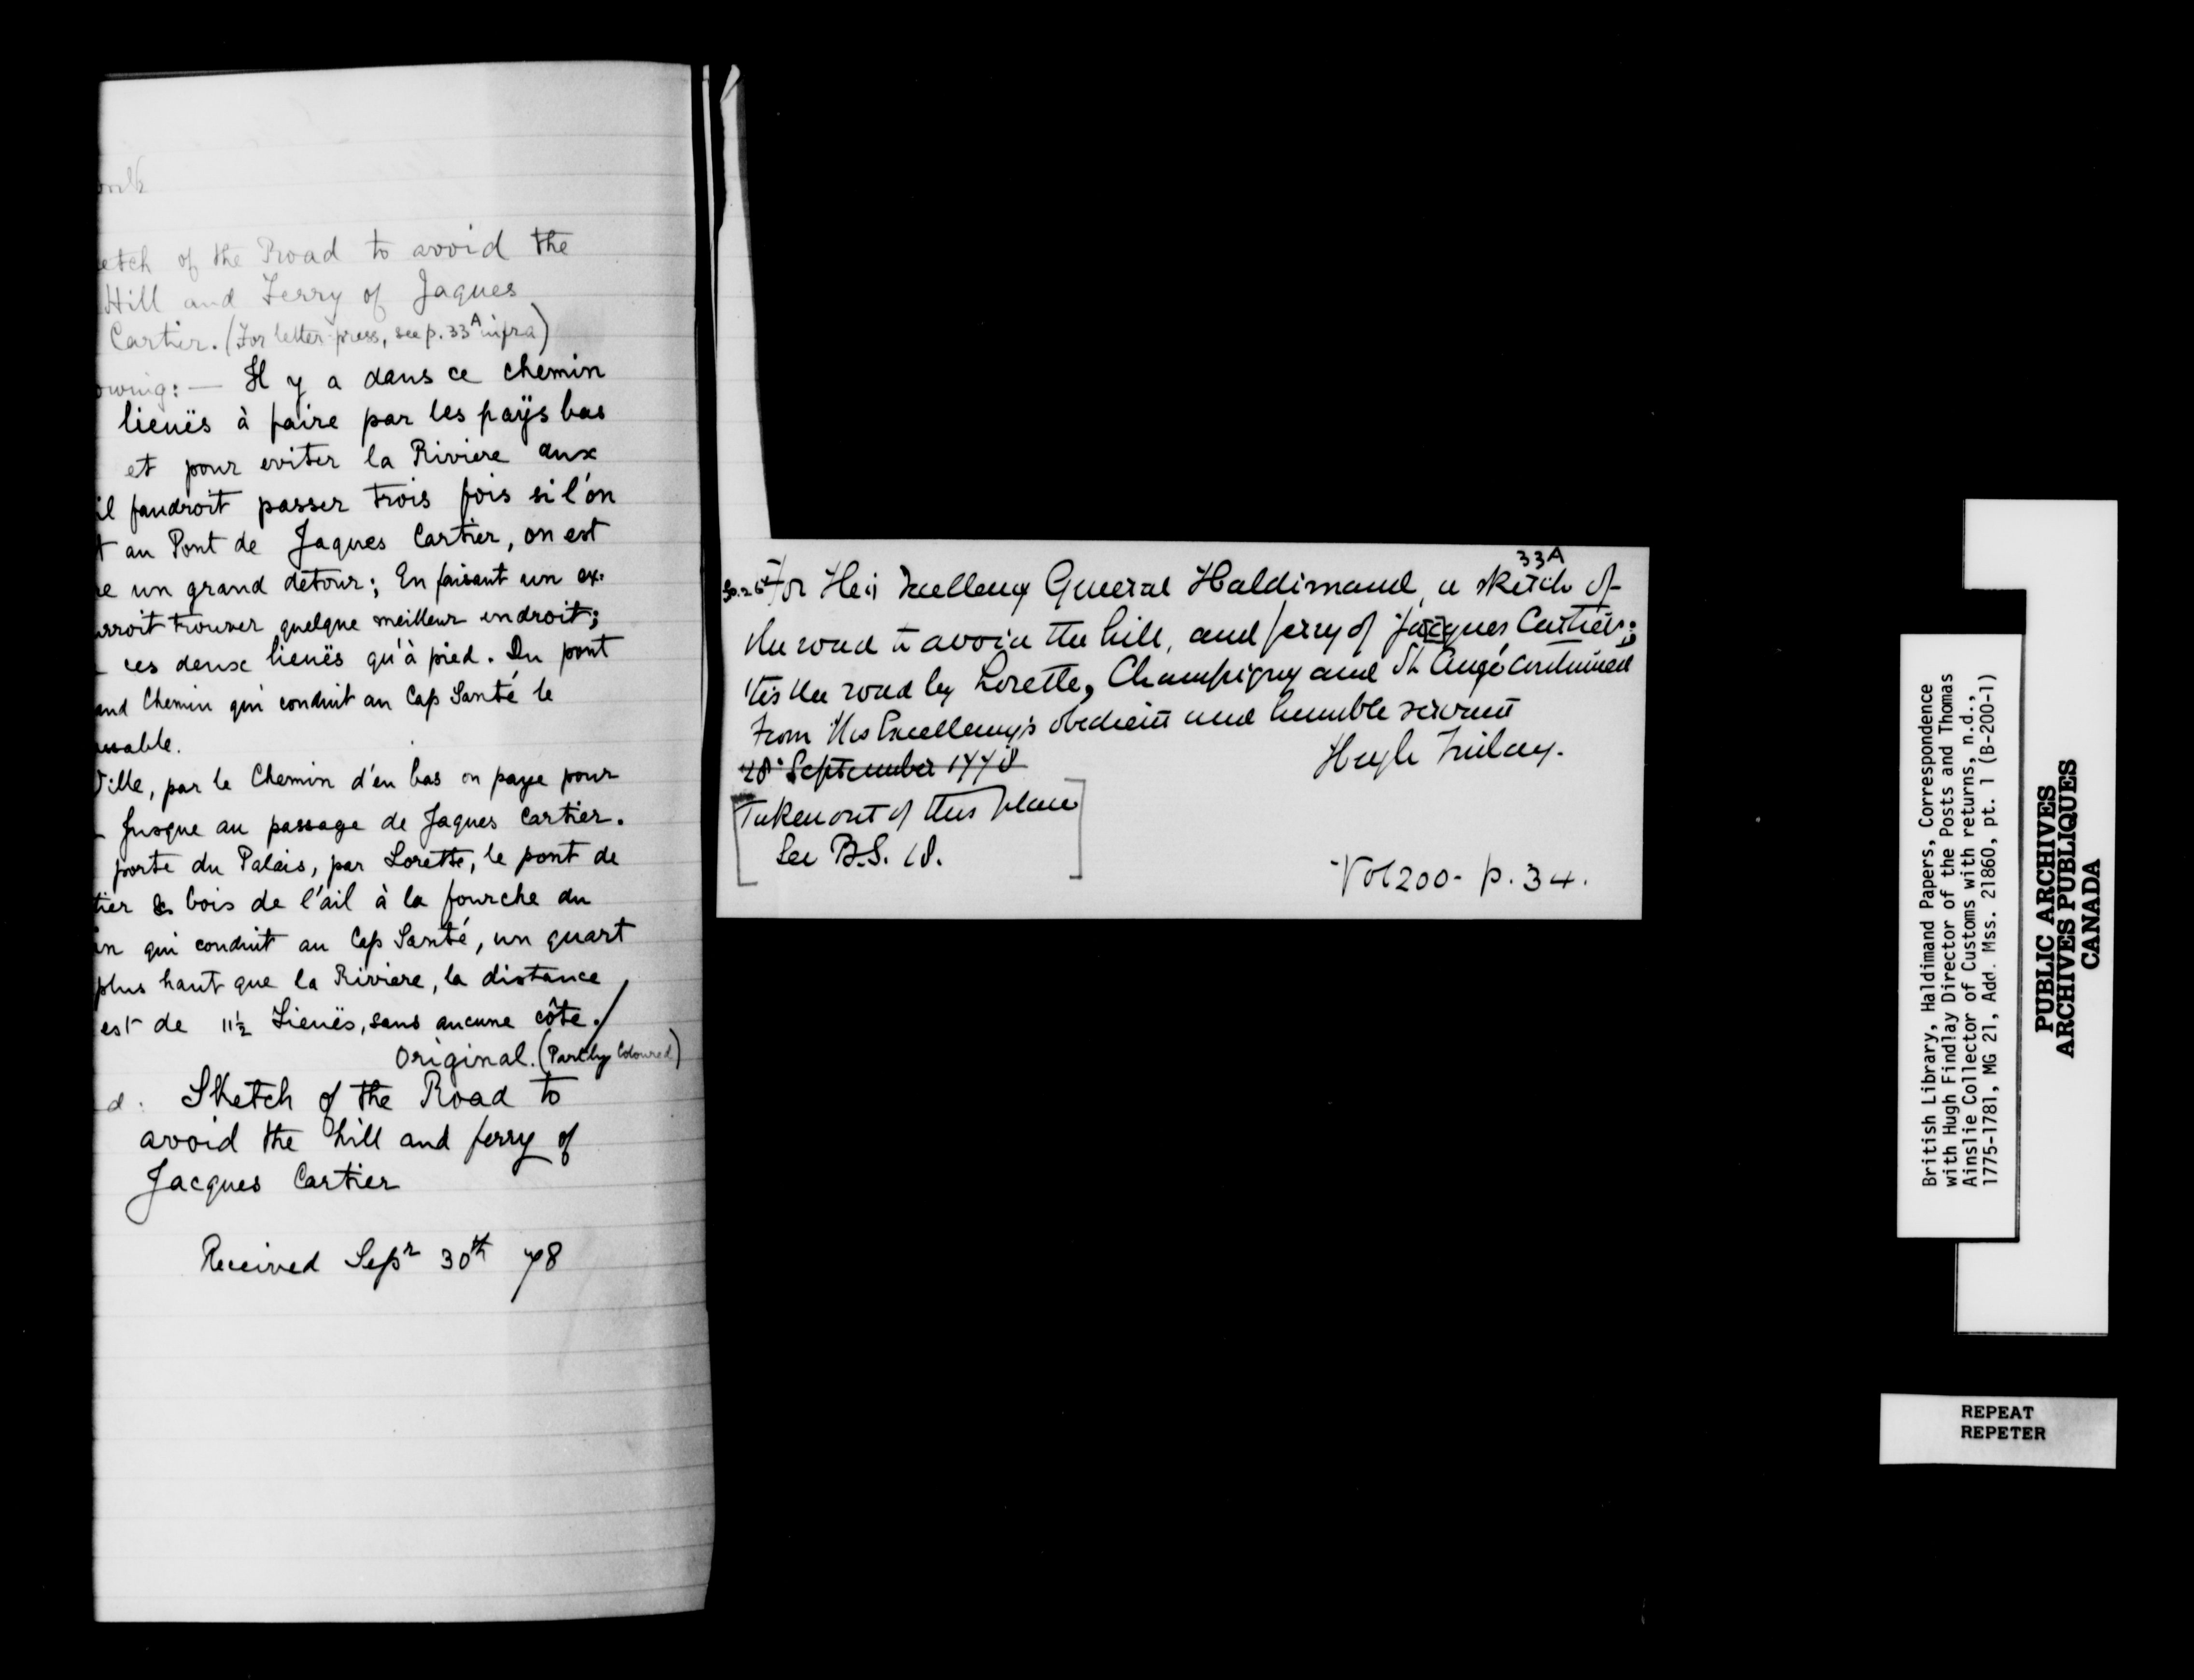 etch of the Road to avoid the
Hill and Ferry of Jaques
Cartier. (For letter-press, see p. 33A infra)
owing: — Il y a dans ce chemin
lieuës à faire par les paÿs bas
et pour eviter la Riviere aux
il faudroit passer trois fois si l'on
t au Pont de Jaques Cartier, on est
re un grand detour; En faisant un ex-
urroit trouver quelque meilleur endroit;
ces deux lieuës qu'à pied. Du pont
and Chemin qui conduit au Cap Santé le
uable.
Ville, par le Chemin d'en bas on paye pour
Jusque au passage de Jaques Cartier.
porte du Palais, par Lorette, le pont de
tier bois de l'ail à la fourche du
in qui conduit au Cap Santé, un quart
plus haut que la Riviere, la distance
est de 11½ Lieuës, sans aucune côte./
Original. (Partly Coloured)
d. Sketch of the Road to
avoid the hill and ferry of
Jacques Cartier
Received Sepr 30th 78
33A
For His Excellency General Haldimand, a sketch of
the road to avoid the hill, and ferry of Jacques Cartier;
'tis the road by Lorette, Champigny and St Augé continued
From His Excellency's obedient and humble servant
Hugh Finlay.
28 September 1778
[Taken out of this place
See B.S. 18.]
Vol 200 - p. 34.
British Library, Haldimand Papers, Correspondence
with Hugh Findlay Director of the Posts and Thomas
Ainslie Collector of Customs with returns, n.d.,
1775-1781, MG 21, Add. Mss. 21860, pt. 1 (B-200-1)
PUBLIC ARCHIVES
ARCHIVES PUBLIQUES
CANADA
REPEAT
REPETER